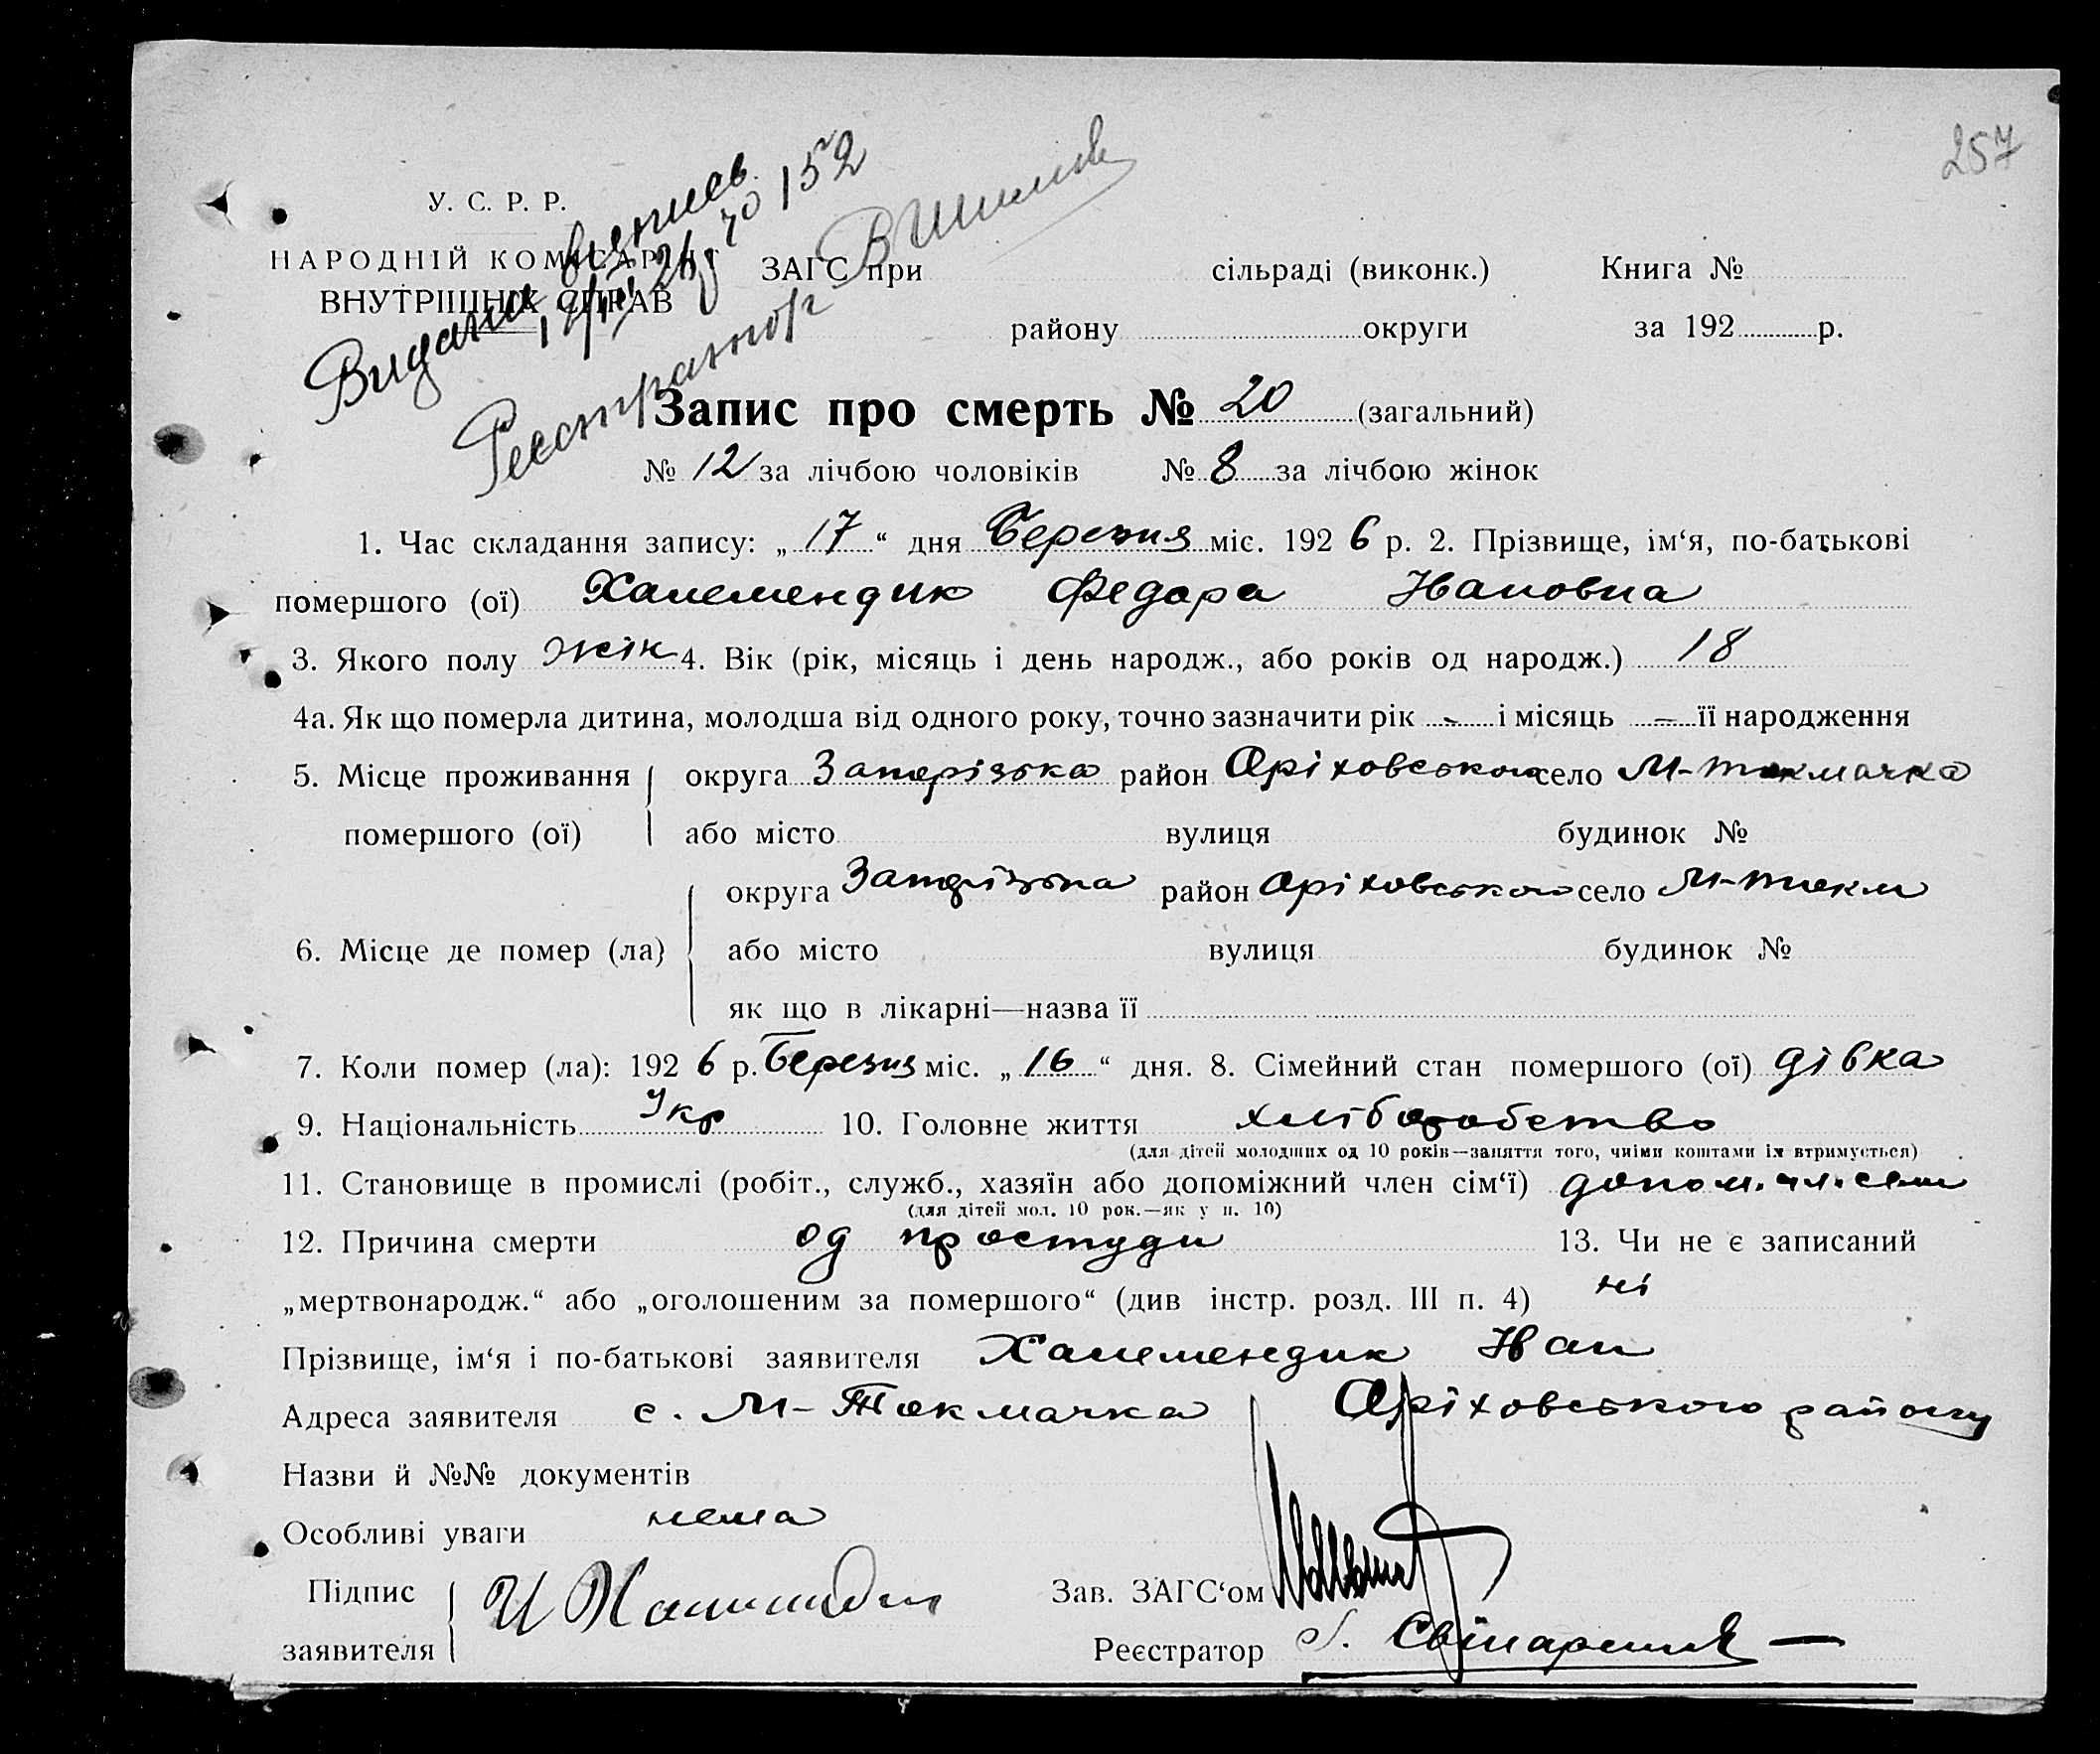 257
Видана выпись
12/IV 26 р № 152
Реєстратор
У. С. Р. Р.
НАРОДНІЙ КОМІСАРІЯТ
ВНУТРІШНІХ СПРАВ
ЗАГС при сільраді (виконк.) Книга №
району округи за 192 р.
Запис про смерть № 20 (загальний)
№ 12 за лічбою чоловіків № 8 за лічбою жінок
1. Час складання запису: „17“ дня Березня міс. 1926 р. 2. Прізвище, ім‘я, по-батькові
помершого (ої) Халемендик Федора Ивановна
3. Якого полу жін 4. Вік (рік, місяць і день народж., або років од народж.) 18
4а. Як що померла дитина, молодша від одного року, точно зазначити рік - і місяць - її народження
5. Місце проживання округа Запорізька район Оріховського село М-Токмачка
помершого (ої) або місто вулиця будинок №
округа Запорізька район Оріховського село М-Токм
6. Місце де помер (ла) або місто вулиця будинок №
як що в лікарні—назва її
7. Коли помер (ла): 1926 р. Березня міс. „16“ дня. 8. Сімейний стан помершого (ої) дівка
9. Національність Укр 10. Головне життя хліборобство
(для дітей молодших од 10 років—заняття того, чиїми коштами їх втримується)
11. Становище в промислі (робіт., служб., хазяїн або допоміжний член сім‘ї) допом. чл. сем
(для дітей мол. 10 рок.—як у п. 10)
12. Причина смерти од простуди 13. Чи не є записаний
„мертвонародж.“ або „оголошеним за помершого“ (див інстр. розд. III п. 4) ні
Прізвище, ім‘я і по-батькові заявителя Халемендик Иван
Адреса заявителя с. М-Токмачка Оріховського району
Назви й №№ документів
Особливі уваги нема
Підпис Зав. ЗАГС‘ом
заявителя Реєстратор